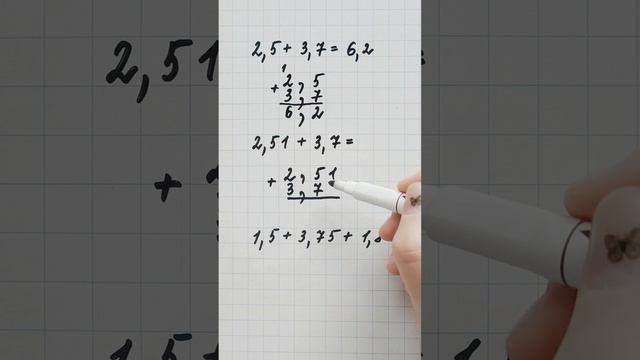 2,5 + 3,7 = 6,2
1
2,5
+
3,7
6,2
2,51 + 3,7 =
2,51
+
3,7
1,5 + 3,75 + 1,